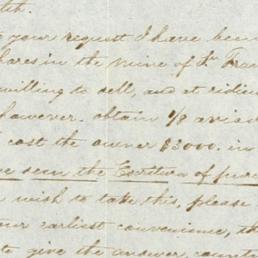 your request I have been
shares in the mine of Sn Fran
willing to sell, and at ridicu
however. obtain 1/8 a
cost the owner $3000. in
seen the Escritura of pur
wish to take this, please
our earliest convenience, th
to give the answer, count